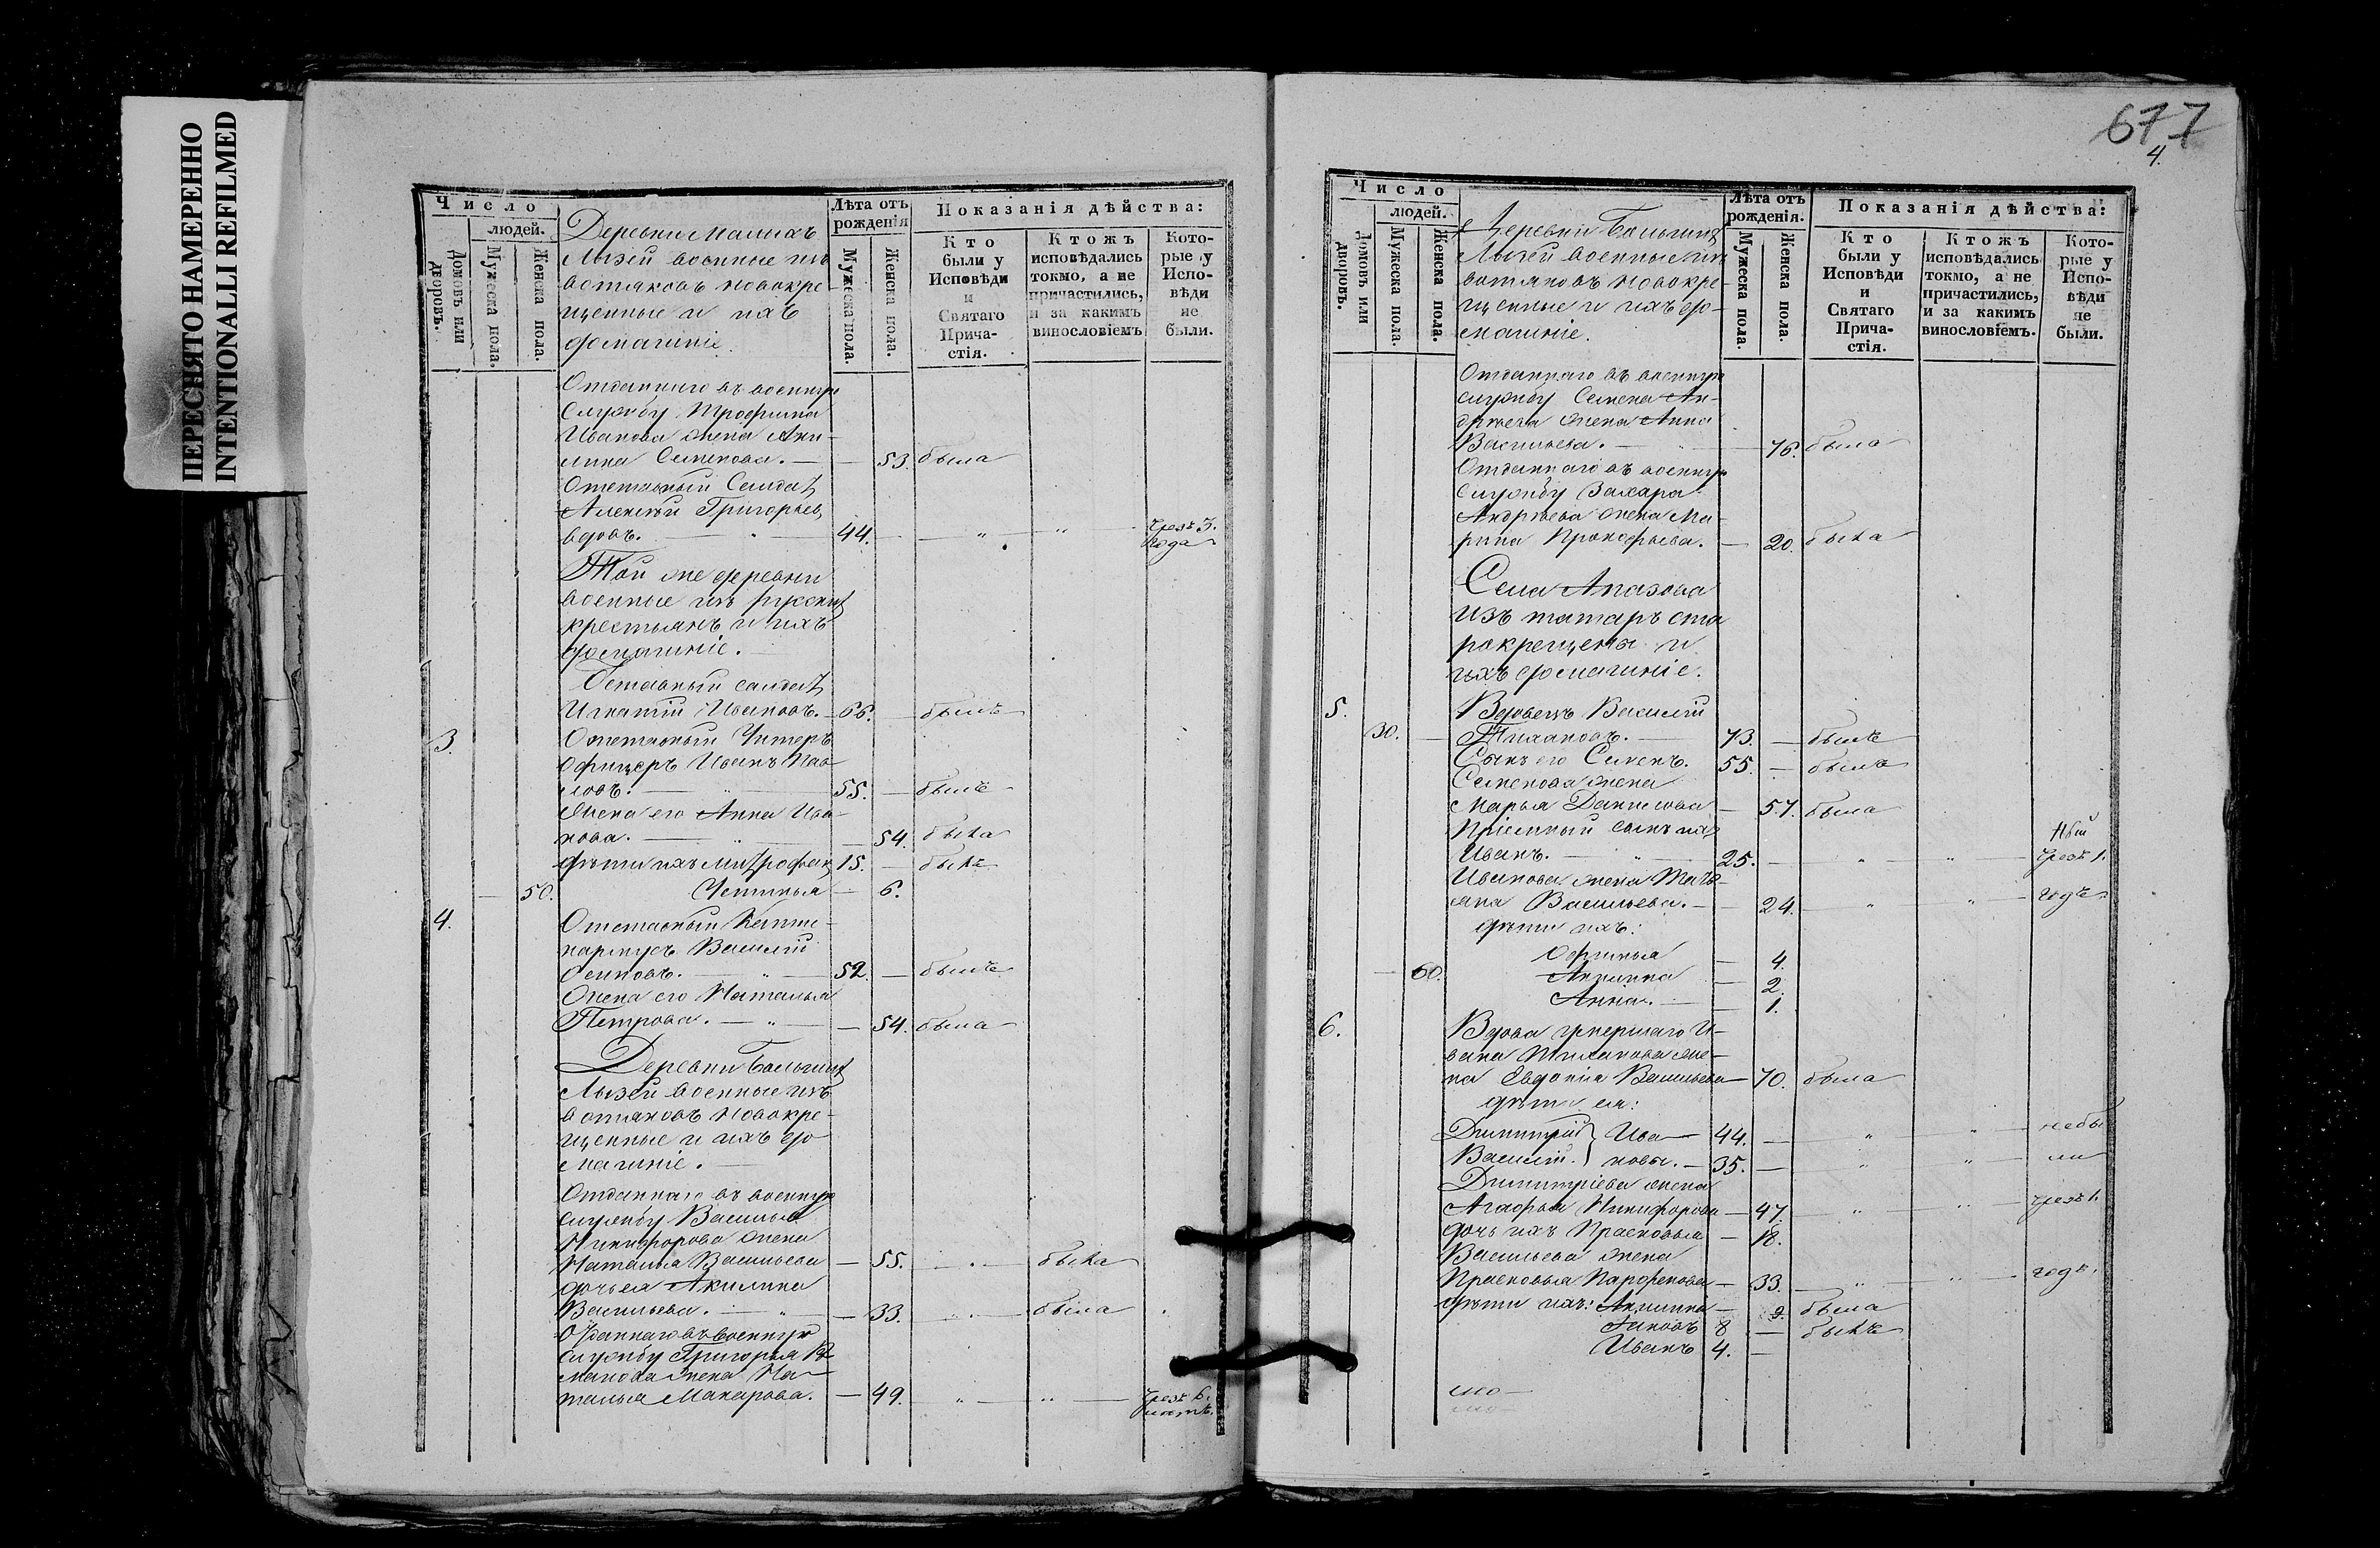 ПЕРЕСНЯТО НАМЕРЕННО
INTENTIONALLI REFILMED
Число
людей.
Домовъ или дворовъ.
Мужеска пола.
Женска пола.
Деревни Малыхъ
Лызей военные изъ
вотяковъ новокре-
щенные и ихъ
домашніе.
Лѣта отъ рожденія
Мужеска пола.
Женска пола.
Показанія дѣйства:
Кто были у Исповѣди и Святаго Прича-стія.
Ктожъ исповѣдались токмо, а не причастились, и за какимъ винословіемъ
Кото-рые у Испо-вѣди не были.
Отданнаго въ военную
службу Трофима
Иванова жена Аку-
лина Семенова. — 53. была
Отставный Солдатъ
Алексѣй Григорьевъ
вдовъ. — 44. — " — " — чрезъ 3.
года
Той же деревни
военные изъ русскихъ
крестьянъ и ихъ
домашніе.
Отставный солдатъ
Игнатій Ивановъ. — 66. — былъ
3. Отставный Унтеръ
Офицеръ Иванъ Пав-
ловъ. — 55. — былъ
Жена его Анна Ива-
нова. — 54. была
дѣти ихъ Митрофанъ 15. — былъ
50. Устинья — 6.
4. Отставный
Василій
Осиповъ. — " — 52. — былъ
Жена его Наталья
Петрова. — " — 54. была
Деревни Большихъ
Лызей военные изъ
вотяковъ новокре-
щенные и ихъ до-
машніе.
Отданнаго въ военную
службу Василья
Никифорова жена
Наталья Васильева — 55. — " — была
дочь ея Акилина
Васильева. — " — 33. — " — была
Отданнаго въ военную
службу Григорья
жена На-
талья Макарова. — 49. — " — " — чрезъ 6.
лѣтъ.
677
4.
Число
людей.
Домовъ или дворовъ.
Мужеска пола.
Женска пола.
Деревни Большихъ
Лызей военные изъ
вотяковъ новокре-
щенные и ихъ до-
машніе.
Лѣта отъ рожденія.
Мужеска пола.
Женска пола.
Показанія дѣйства:
Кто были у Исповѣди и Святаго Прича-стія.
Ктожъ исповѣдались токмо, а не причастились, и за какимъ винословіемъ.
Кото-рые у Испо-вѣди не были.
Отданнаго въ военную
службу Семена Ан-
дреева жена Анна
Васильева. — 76. была
Отданнаго въ военную
службу Захара
Андрѣева жена Ма-
рина Прокофьева. — 20. была
Села Апазова
изъ татаръ ста
рокрещены и
ихъ домашніе.
5. Вдовецъ Василій
30. — Тихановъ. — 73. — былъ
Сынъ его Семенъ. 55. — былъ
Семенова жена
Марья Данилова — 57. была
Пріемный сынъ ихъ
Иванъ. — " — 25. — " — " — чрезъ 1.
Иванова жена Татья-
яна Васильева. — 24. — " — " — годъ
дѣти ихъ:
Офимья — 4.
60. Акилина — 2.
Анна. — 1.
6. Вдова умершаго И-
вана Тиханова же-
на Евдокія Васильева — 70. была
дѣти ея:
Димитрій } Ива — 44. — " — " — небы
Василій. } новы. — 35. — " — " — ли
Димитріева жена
Агафья Никифорова — 47. — " — " — чрезъ 1.
дочь ихъ Прасковья — 18.
Васильева жена
Прасковья Парфенова — 33. — " — " — годъ.
дѣти ихъ: Акилина — 9. была
Яковъ 8 — былъ
Иванъ 4. —